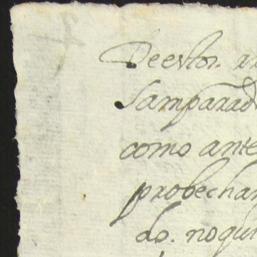 Deestos
samparad
como ante
probechar
do. noqui